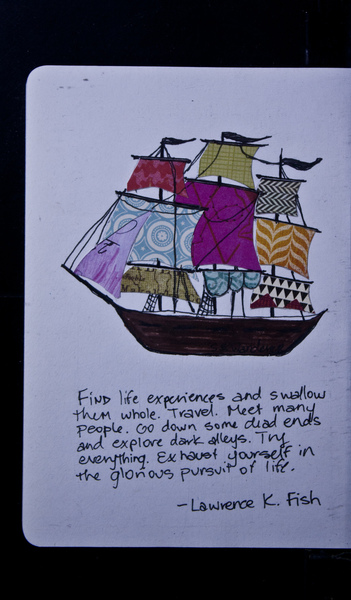 Find life experiences and swallow
them whole. Travel. Meet many
people. Go down some dead ends
and explore dark alleys. Try
everything. Exhaust yourself in
the glorious pursuit of life.
-Lawrence K. Fish